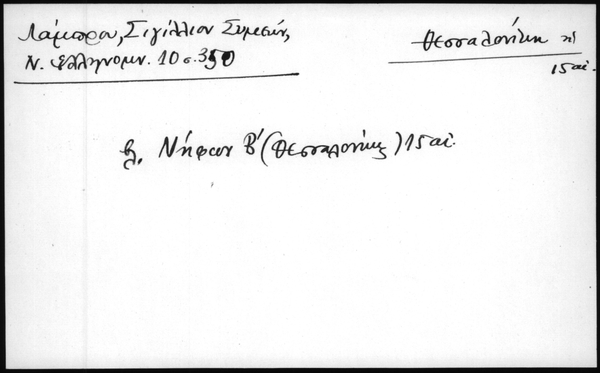 Λάμπρου, Σιγίλλιον Συμεών,
Ν. Ελληνομν. 10 σ. 350
Θεσσαλονίκη
15 αἰ.
βλ. Νήφων Β' (Θεσσαλονίκης) 15 αἰ.